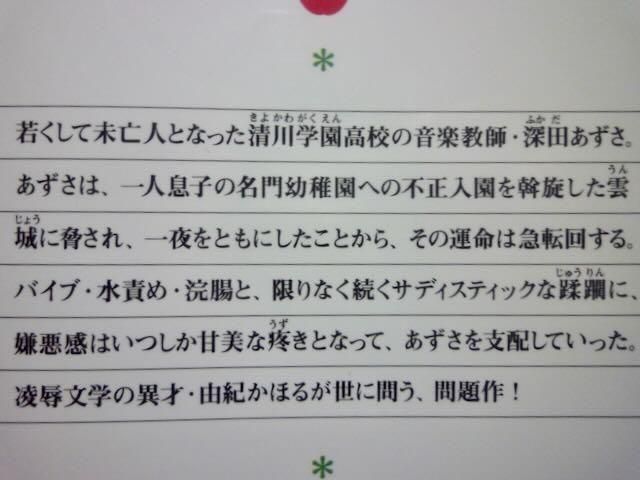 若くして未亡人となった清川学園高校の音楽教師・深田あずさ。
あずさは、一人息子の名門幼稚園への不正入園を斡旋した雲
城に脅され、一夜をともにしたことから、その運命は急転回する。
バイブ・水責め・浣腸と、限りなく続くサディスティックな蹂躙に、
嫌悪感はいつしか甘美な疼きとなって、あずさを支配していった。
凌辱文学の異才・由紀かほるが世に問う、問題作！